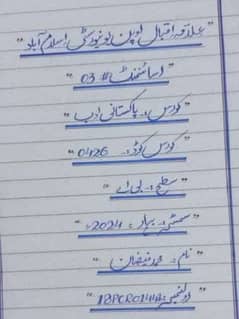 "علامہ اقبال اوپن یونیورسٹی اسلام آباد"
"اسائنمنٹ # 03"
"کورس: پاکستانی ادب"
"کورس کوڈ: 0426"
"سطح: بی اے"
"سمسٹر: بہار 2024ء"
"نام: محمد فیضان"
"رول نمبر: